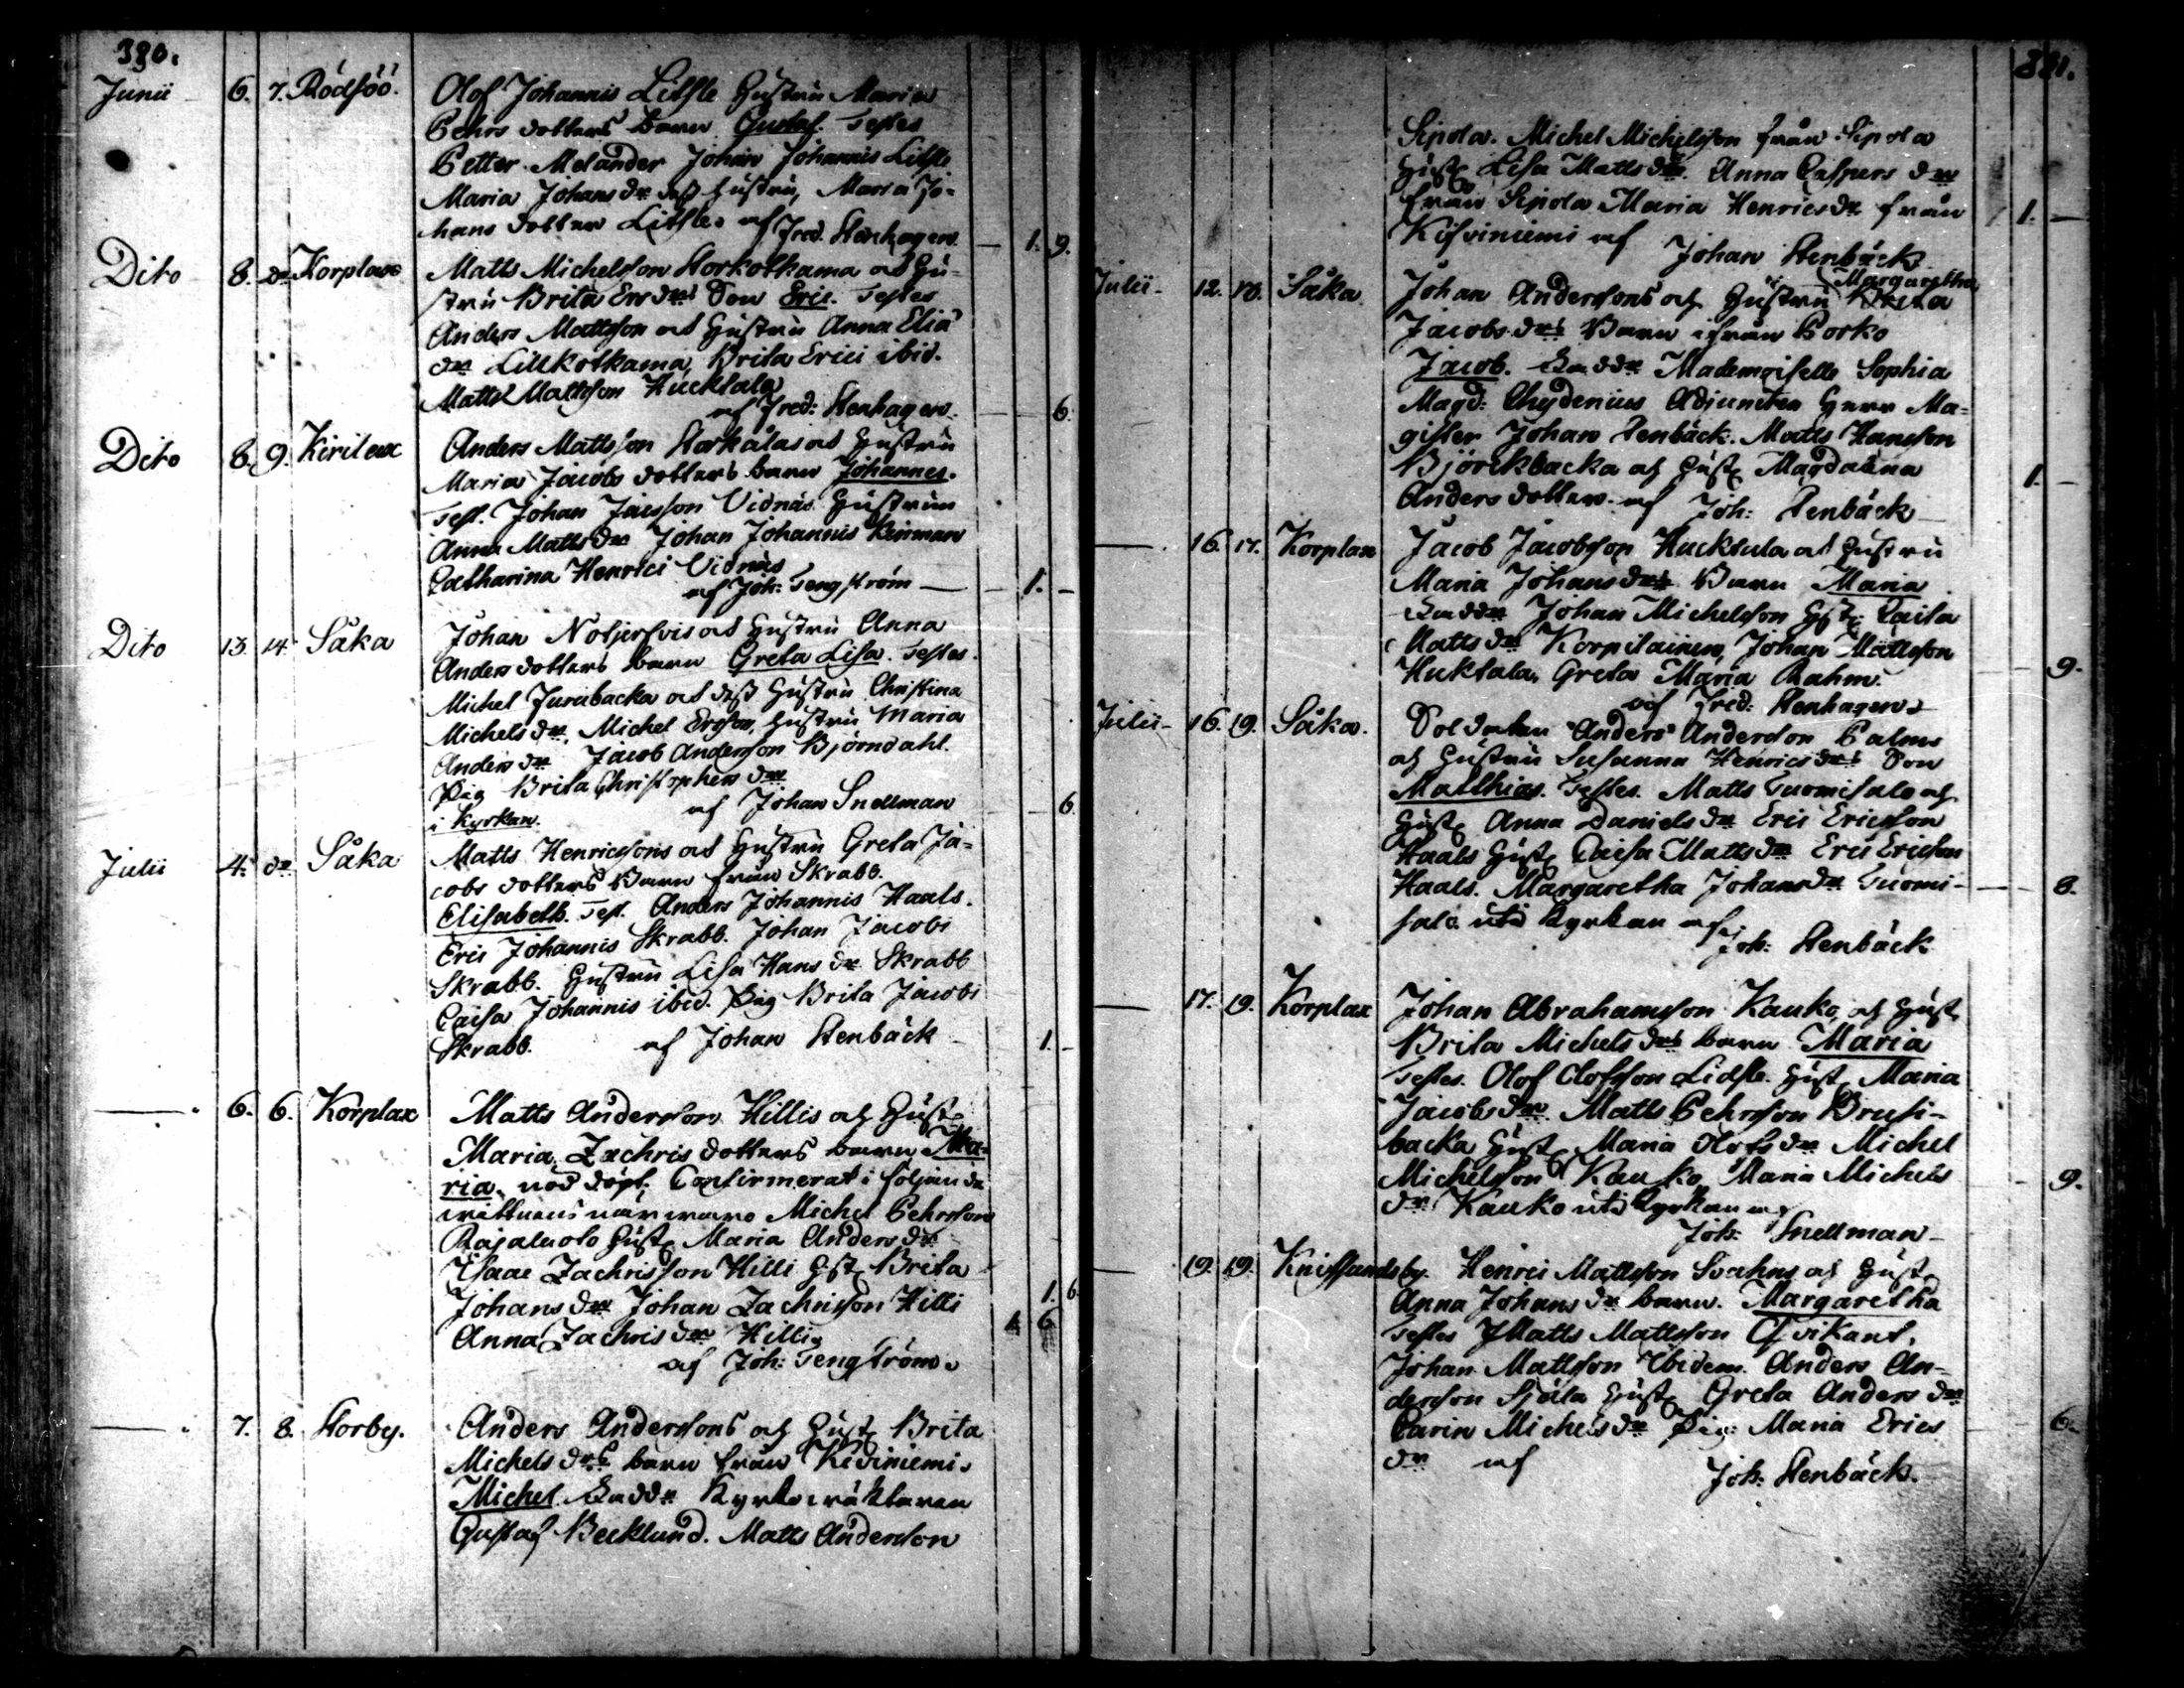 380.
Junii 6. 7. Rödsöö. Olof Johannis Lithle Hustru Maria
Pehrs dotters barn Gustaf. Testes
Petter Melander Johan Johannis Lithle
Maria Johans dr dess hustru, Maria Jo-
hans dotter Lithle. af Fred. Stenhagen. — 1. 9.
Dito 8. do Korplax Matts Michelsson Storkotkama och Hu-
stru Brita Ers drs Son Eric. Testes
Anders Mattsson och Hustru Anna Eliæ
dr Lillkotkama, Brita Erici ibid.
Matts Mattsson Hucktala
af Fred: Stenhagen. — 6.
Dito 8. 9. Kirilax Anders Mattsson Storkålas och Hustru
Maria Jacobs dotters barn Johannes.
Test. Johan Jacsson Vidnäs Hustrun
Anna Matts dr Johan Johannis
Catharina Henrici Vidnäs
af Joh: Tengström — 1. —
Dito 13. 14. Såka Johan Notjerfvis och Hustru Anna
Anders dotters barn Greta Lisa. Testes.
Michel Jurubacka och dess Hustru Christina
Michels dr, Michel Ersson, Hustru Maria
Anders dr Jacob Andersson Björndahl.
Pig Brita Christophers dr
i Kyrkan. af Johan Snellman 6.
Julii 4. do Såka Matts Henricssons och Hustru Greta Ja-
cobs dotters Barn från Skrabb.
Elisabeth. Test. Anders Johannis Haals.
Eric Johannis Skrabb. Johan Jacobi
Skrabb. Hustru Lisa Hans dr Skrabb
Caisa Johannis ibid. Pig Brita Jacobi
Skrabb. af Johan Stenbäck 1. —
— 6. 6. Korplax Matts Andersson Hillis och Hust.
Maria Zachris dotters barn Ma-
ria. nöd döpt, Confirmerat i följande
wittnens närwaro Michel Pehrsson
Rajaluoto Hust. Maria Anders dr
Isaac Zachrisson Hilli Hst. Brita
Johans dr Johan Zachrisson Hilli 1. 6.
Anna Zachris dr Hilli
af Joh: Tengström.
— 7. 8. Storby. Anders Anderssons och Hust. Brita
Michels drs barn från Kiviniemi.
Michel. Fadd: Kyrkowäktaren
Gustaf Becklund. Matts Andersson
381.
Sipola. Michel Michelsson från Sipola
Hust. Lisa Matts dr. Anna Caspers dr
från Sipola Maria Henrics dr från 1. —
Kifviniemi af Johan Stenbäck
Julii 12. 13. Såka. Johan Anderssons och Hustru Margaretha
Jacobs drs Barn ifrån Porko
Jacob. Fadd: Mademoiselle Sophia
Magd: Chydenius Adjuncten Herr Ma-
gister Johan Stenbäck. Matts Hansson
Björckbacka och Hust. Magdalena
Anders dotter. af Joh: Stenbäck 1. —
— 16. 17. Korplax Jacob Jacobsson Hucktula och Hustru
Maria Johans drs Barn Maria
Fadd: Johan Michelsson Hst. Caisa
Matts dr Korpilainen, Johan Mattsson
Huktala, Greta Maria Rahm. 9.
af Fred: Stenhagen.
Julii 16. 19. Såka. Soldaten Anders Andersson Palms
och Hustru Susanna Henrics drs Son
Matthias. Testes. Matts Tuomisalo och
Hust. Anna Daniels dr Eric Ericsson
Haals Hust. Caisa Matts dr Eric Ericson
Haals. Margaretha Johans dr Tuomi- — 8.
salo uti Kyrkan af
Joh: Stenbäck
— 17. 19. Korplax Johan Abrahamsson Kauko och Hust.
Brita Michels drs barn Maria
Testes. Olof Olofsson Lidsle. Hust. Maria
Jacobs dr Matts Pehrsson Brusi-
backa Hust. Maria Olofs dr Michel
Michelsson Kauko, Maria Michels 9.
dr Kauko uti Kyrkan af
Joh: Snellman
— 19. 19. Knifsundsby. Henric Mattsson Svahns och Hust.
Anna Johans dr barn. Margaretha
Testes Matts Mattsson Qvikant.
Johan Mattsson Ibidem. Anders An-
dersson Själa Hust. Greta Anders dr
Carin Michels dr Pig: Maria Erics 6.
dr af Joh: Stenbäck.